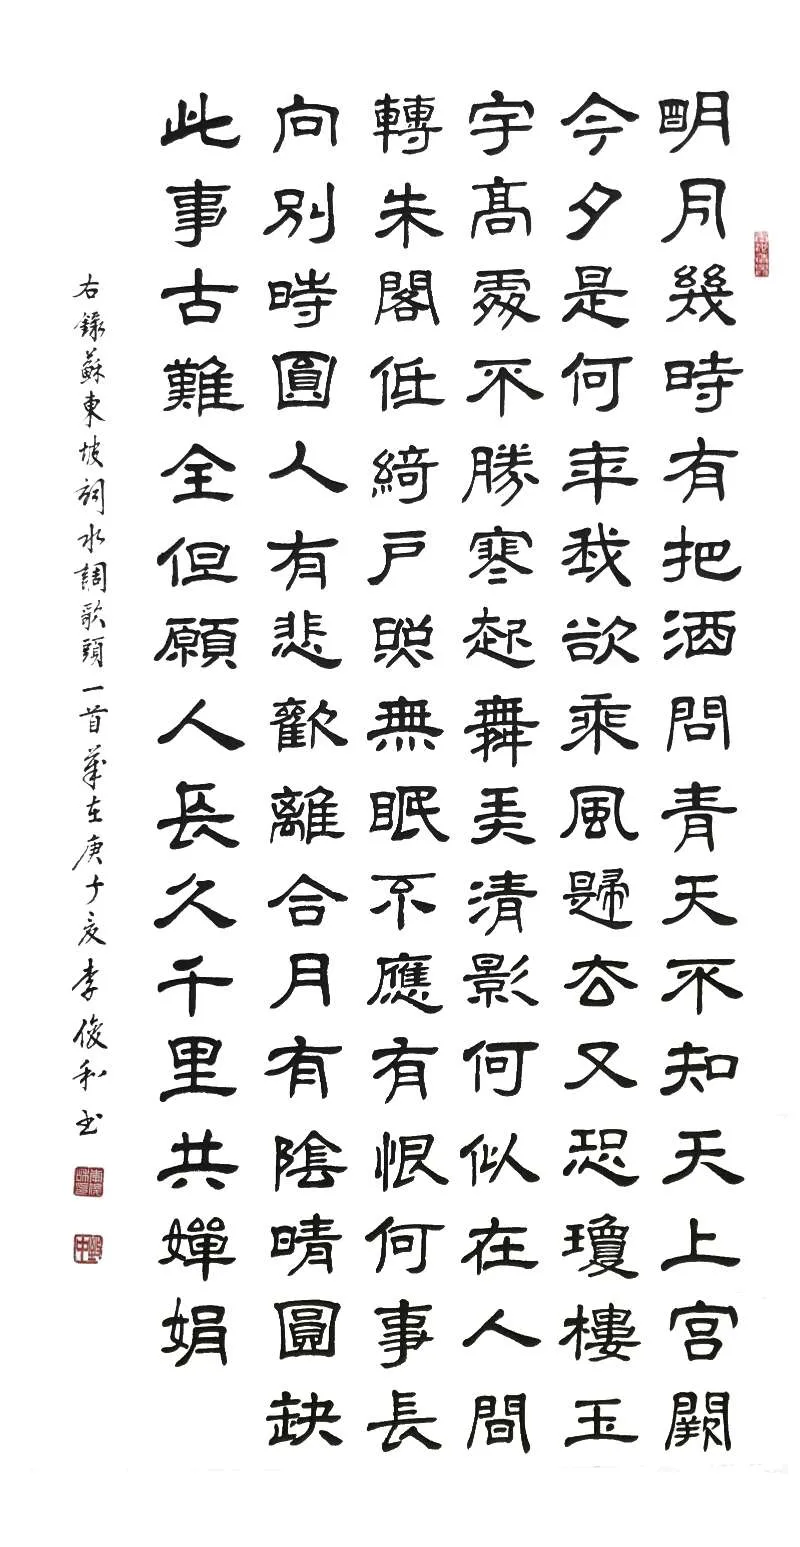 明月幾時有把酒問青天不知天上宮闕
今夕是何年我欲乘風歸去又恐瓊樓玉
宇高處不勝寒起舞弄清影何似在人間
轉朱閣低綺戶照無眠不應有恨何事長
向別時圓人有悲歡離合月有陰晴圓缺
此事古難全但願人長久千里共嬋娟
右錄蘇東坡詞水調歌頭一首歲在庚子夏李俊和書